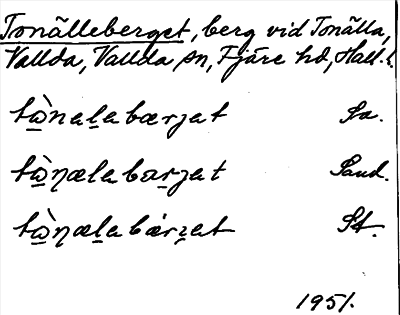 Tonälleberget, berg vid Tonälla,
Vallda, Vallda sn, Fjäre hd, Hall. l.
tὼnelabærjat Sa.
tὼŋælabærjat Sand.
tὼŋælabǽrjat St.
1951.